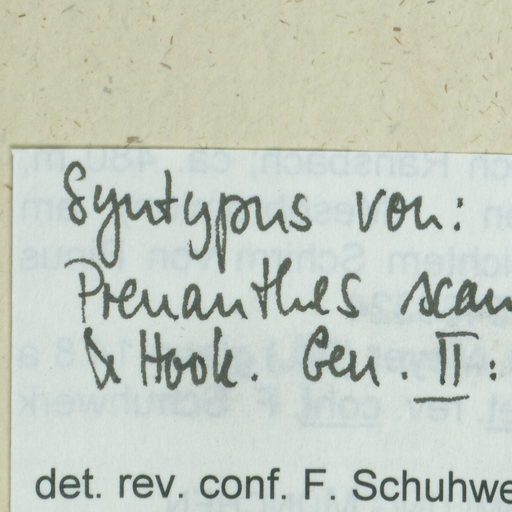 Syntypus von:
Prenanthes scan
& Hook. Gen. II:
det. rev. conf. F. Schuhwe